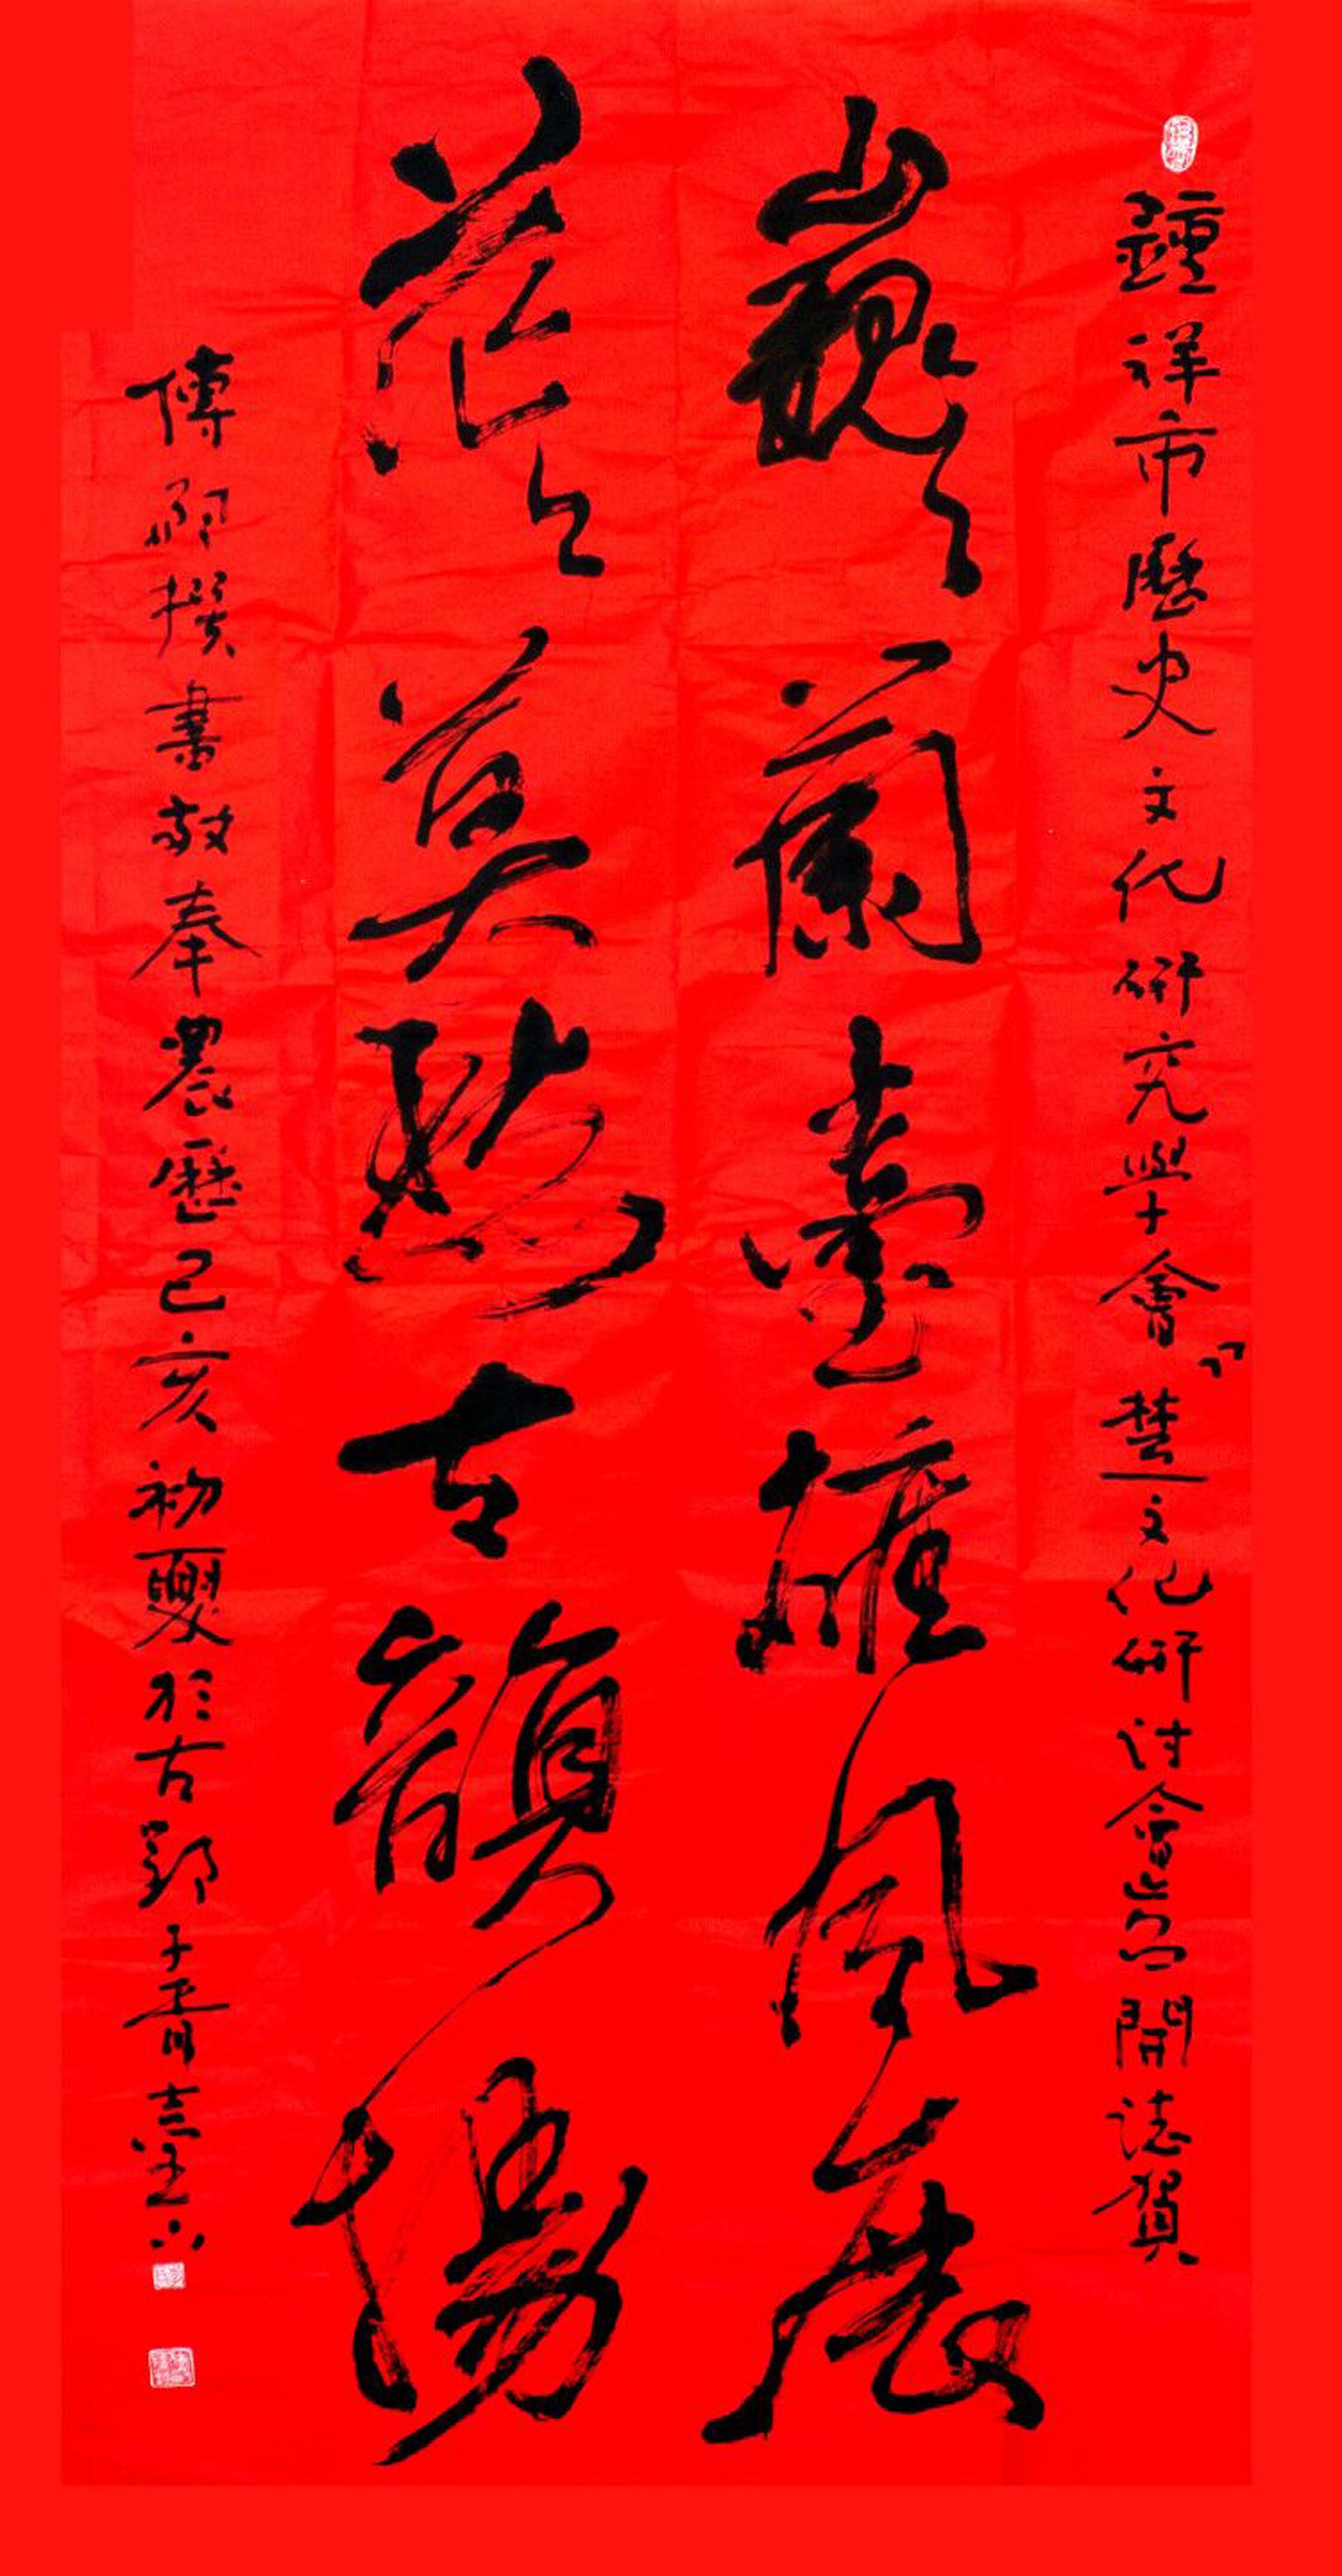 鍾祥市歷史文化研究學會『楚文化研討會召開誌賀
巍々蘭臺雄風展
茫々莫愁古韻揚
傅撰書敬奉農歷己亥初夏於古郢子胥臺下